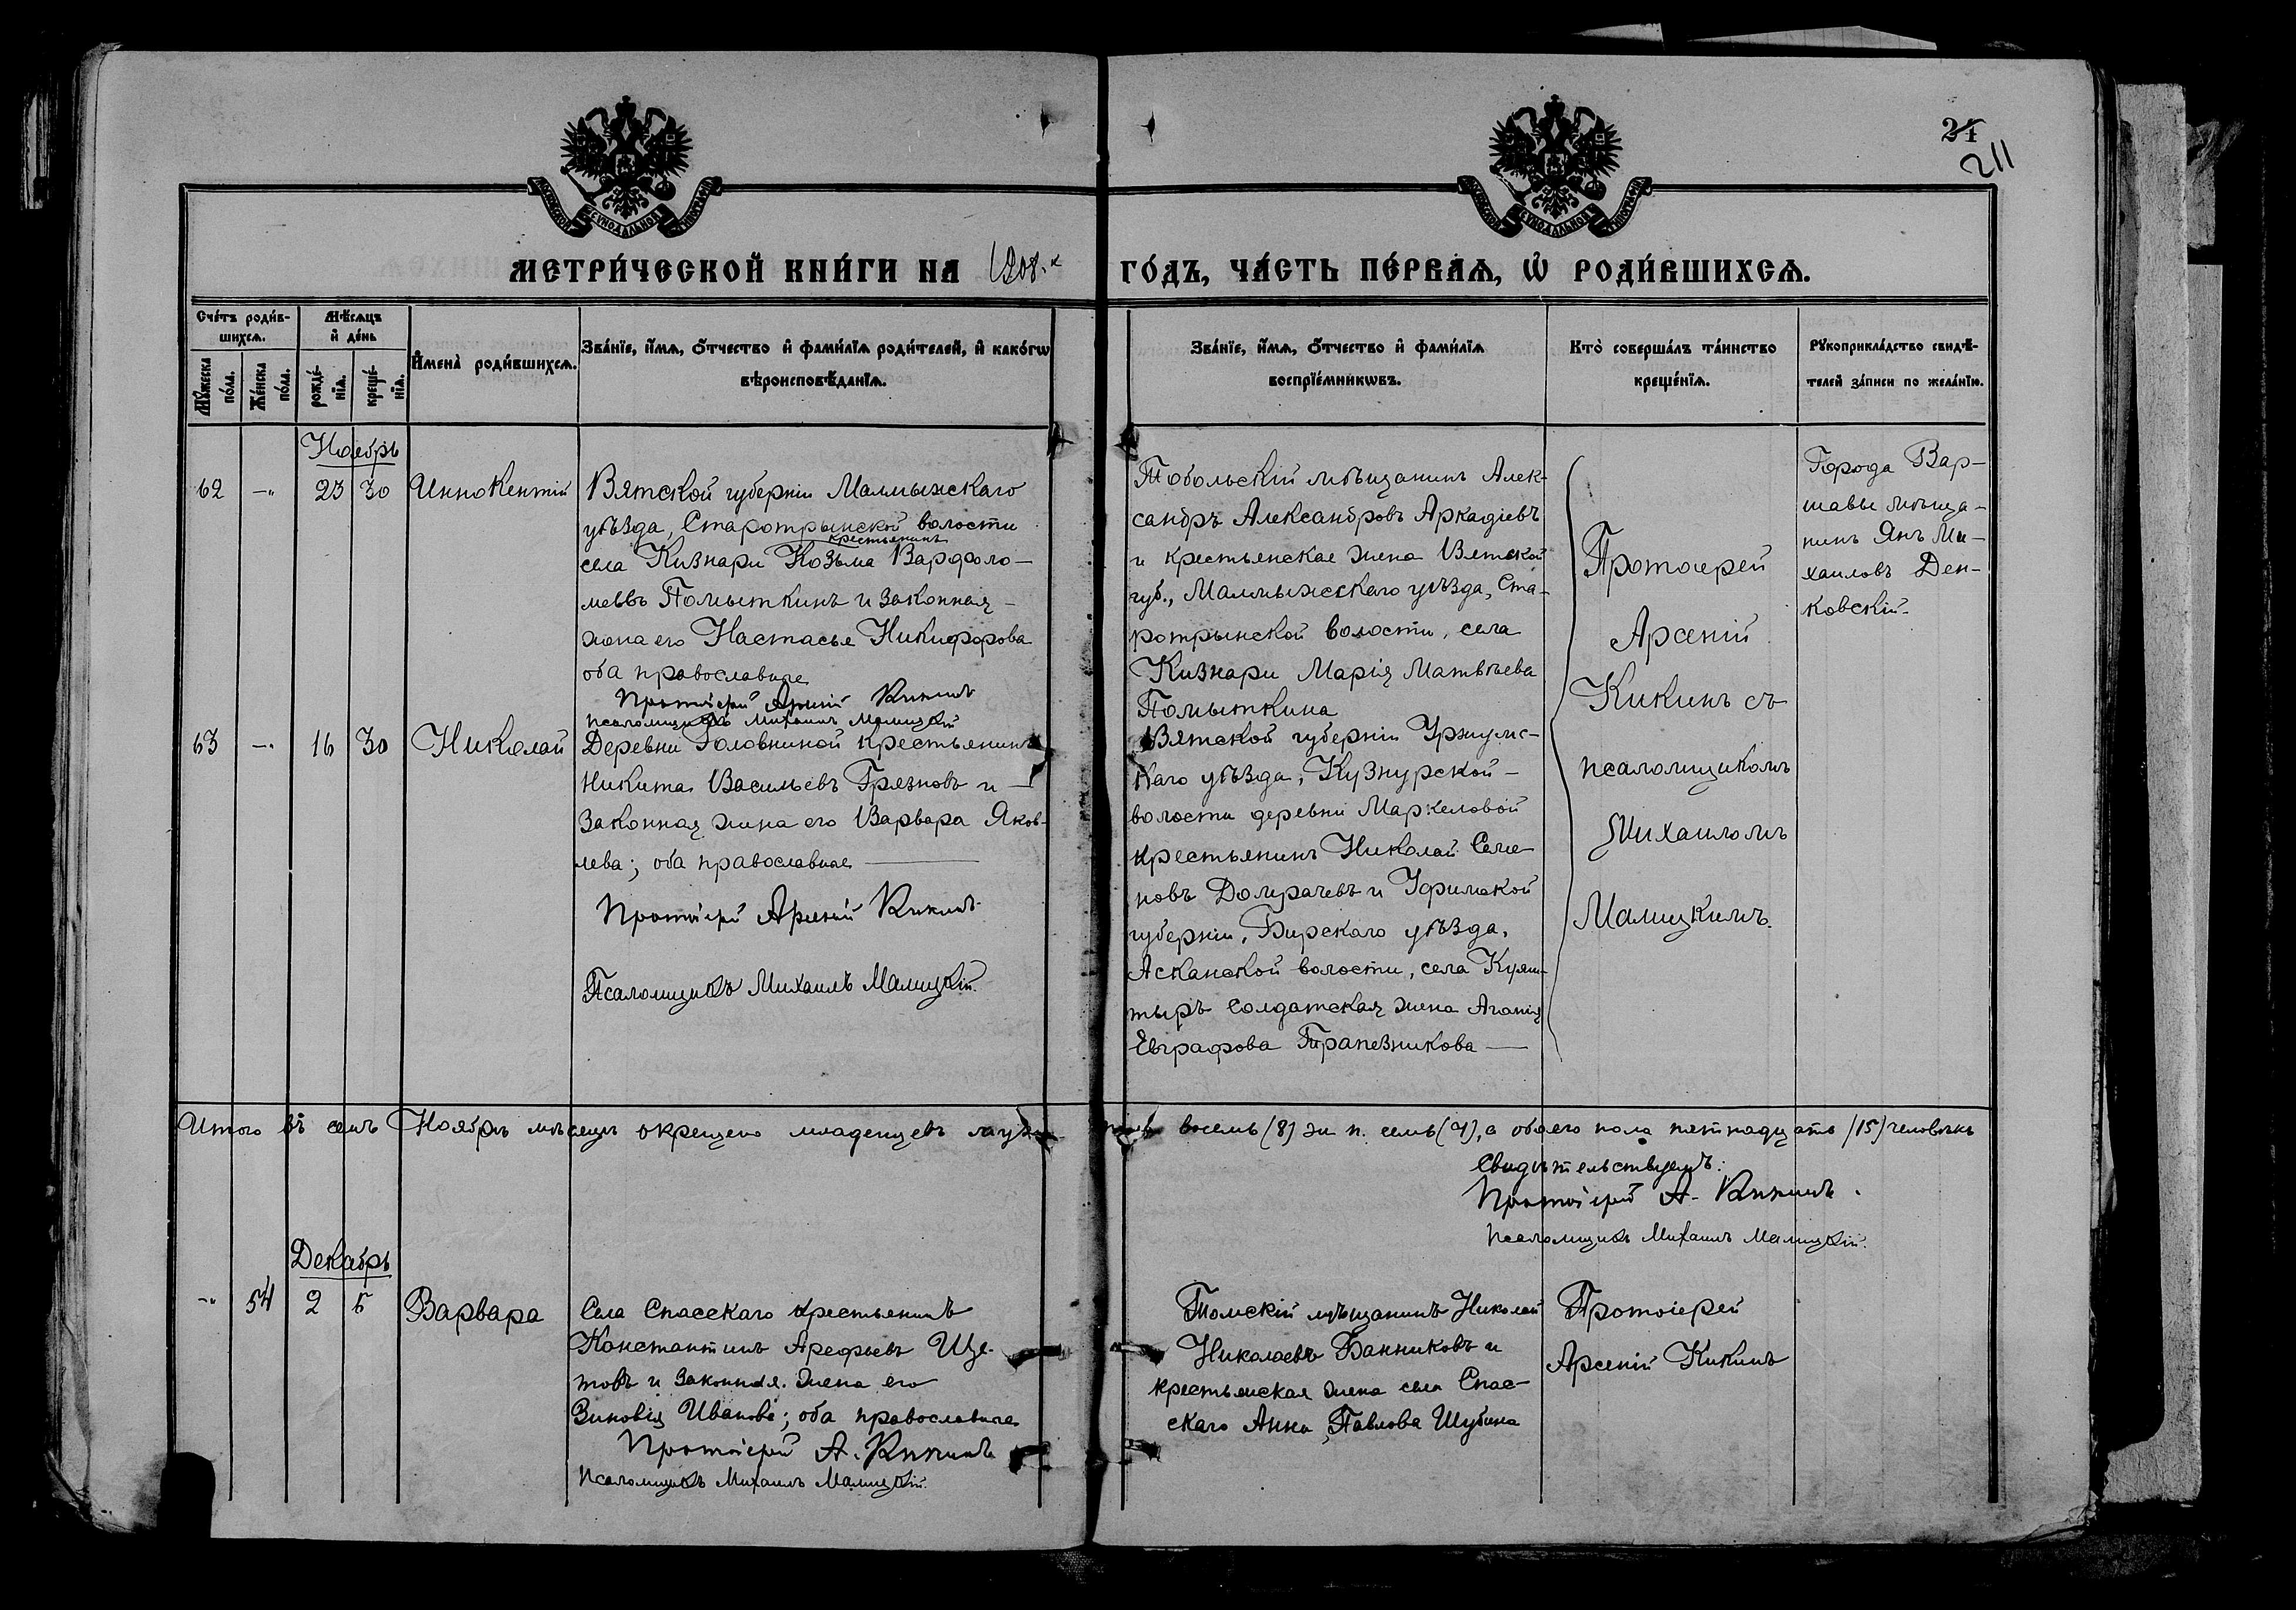 24
211
МЕТРИ́ЧЕСКОЙ КНИ́ГИ НА 1908.
ГО́ДЪ, ЧА́СТЬ ПЕ́РВАѦ, Ѽ РОДИ́ВШИХСѦ.
Сче́тъ роди́в-
шихсѧ.
Мѣ́сѧцъ
и҆ де́нь
Мꙋ́жеска
по́ла.
Же́нска
по́ла.
рожде́-
нїѧ.
креще́-
нїѧ.
И҆мена̀ роди́вшихсѧ.
Зва́нїе, и҆́мѧ, ѻ҆́тчество и҆ фами́лїѧ роди́телей, и҆ како́гѡ
вѣроисповѣ́данїѧ.
Зва́нїе, и҆́мѧ, ѻ҆́тчество и҆ фами́лїѧ
воспрїе́мникѡвъ.
Кто̀ соверша́лъ та́инство
креще́нїѧ.
Рꙋкоприкла́дство свидѣ́-
телей за́писи по жела́нїю.
Ноябрь
62 -„ 23 30 Иннокентій
Вятской губерніи Малмыжскаго
уѣзда, Старотрынской волости
крестьянинъ
села Кизнари Козьма Варфоло-
меевъ Помыткинъ и законная
жена его Настасья Никифорова
оба православные
Протоіерей Арсеній Кикинъ
Псаломщикъ Михаилъ Малицкій
Тобольскій мѣщанинъ Алек-
сандръ Александровъ Аркадіевъ
и крестьянская жена Вятской
губ., Малмыжскаго уѣзда, Ста-
ротрынской волости, села
Кизнари Марія Матвѣева
Помыткина
Протоіерей
Арсеній
Кикинъ съ
псаломщикомъ
Михаиломъ
Малицкимъ.
Города Вар-
шавы мѣща-
нинъ Янъ Ми-
хаиловъ Ден-
ковскій.
63 -„ 16 30 Николай
Деревни Головниной крестьянинъ
Никита Васильевъ Грязновъ и
законная жена его Варвара Яков-
лева; оба православные
Протоіерей Арсеній Кикинъ
Псаломщикъ Михаилъ Малицкій.
Вятской губерніи Уржумс-
каго уѣзда, Кузнурской
волости деревни Маркеловой
крестьянинъ Николай Семе-
новъ Домрачевъ и Уфимской
губерніи, Бирскаго уѣзда,
Асканской волости, села
солдатская жена Агапія
Евграфова Трапезникова
Итого въ семъ Ноябрѣ мѣсяцѣ окрещено младенцевъ
восемь (8) ж. п. семь (7), а обоего пола пятнадцать (15) человѣкъ
Свидѣтельствуемъ:
Протоіерей А. Кикинъ.
Псаломщикъ Михаилъ Малицкій.
Декабрь
-„ 54 2 5 Варвара
Села Спасскаго крестьянинъ
Константинъ Арефьевъ Ще-
товъ и законная жена его
Зиновія Иванова; оба православные
Протоіерей А. Кикинъ
Псаломщикъ Михаилъ Малицкій.
Томскій мѣщанинъ Николай
Николаевъ Банниковъ и
крестьянская жена села Спас-
скаго Анна Павлова Шубина
Протоіерей
Арсеній Кикинъ